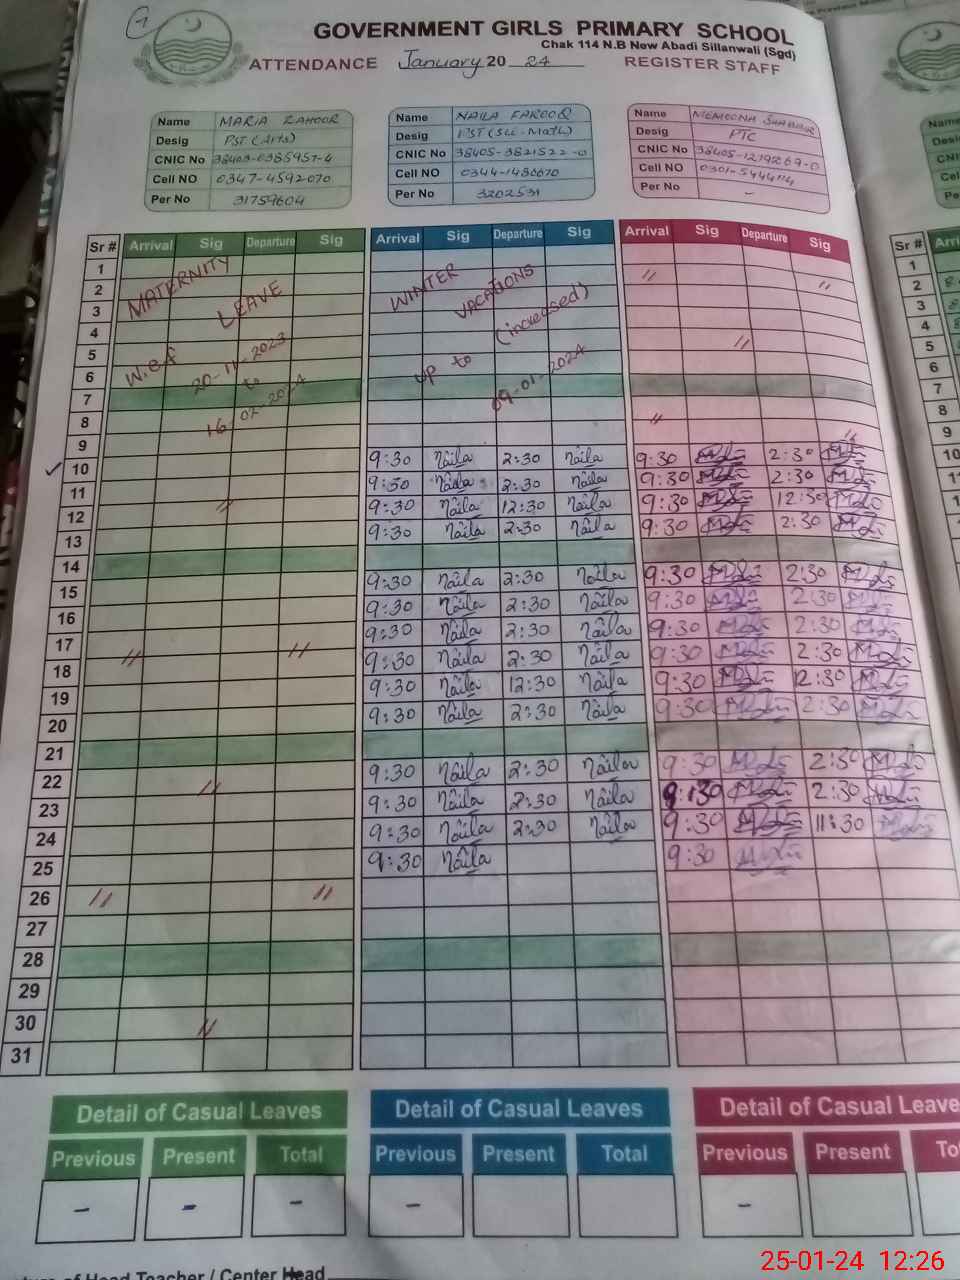 GOVERNMENT GIRLS PRIMARY SCHOOL
Chak 114 N.B New Abadi Sillanwali (Sgd)
ATTENDANCE January 20 24 REGISTER STAFF
Name MARIA ZAHOOR
Desig PST (Arts)
CNIC No 38403-0385957-4
Cell NO 0347-4592070
Per No 31759604
Name NAILA FAROOQ
Desig PST (Sci-Math)
CNIC No 38405-3821522-0
Cell NO 0344-1480070
Per No 3202531
Name MEMOONA SHABBIR
Desig PTC
CNIC No 38405-1279269-0
Cell NO 0301-5444114
Per No -
Sr # Arrival Sig Departure Sig Arrival Sig Departure Sig Arrival Sig Departure Sig
1
2
3
4
5
6
7
8
9
MATERNITY
LEAVE
w.e.f 20-11-2023
to
16-02-2024
WINTER
VACATIONS
(increased)
up to
09-01-2024
10 9:30 Naila 2:30 Naila 9:30 2:30
11 9:30 Naila 2:30 Naila 9:30 2:30
12 9:30 Naila 12:30 Naila 9:30 12:30
13 9:30 Naila 2:30 Naila 9:30 2:30
14
15 9:30 Naila 2:30 Naila 9:30 2:30
16 9:30 Naila 2:30 Naila 9:30 2:30
17 9:30 Naila 2:30 Naila 9:30 2:30
18 9:30 Naila 2:30 Naila 9:30 2:30
19 9:30 Naila 12:30 Naila 9:30 12:30
20 9:30 Naila 2:30 Naila 9:30 2:30
21
22 9:30 Naila 2:30 Naila 9:30 2:30
23 9:30 Naila 2:30 Naila 9:30 2:30
24 9:30 Naila 2:30 Naila 9:30 11:30
25 9:30 Naila 9:30
26
27
28
29
30
31
Detail of Casual Leaves Detail of Casual Leaves Detail of Casual Leave
Previous Present Total Previous Present Total Previous Present To
- - - - -
of Head Teacher / Center Head
25-01-24 12:26